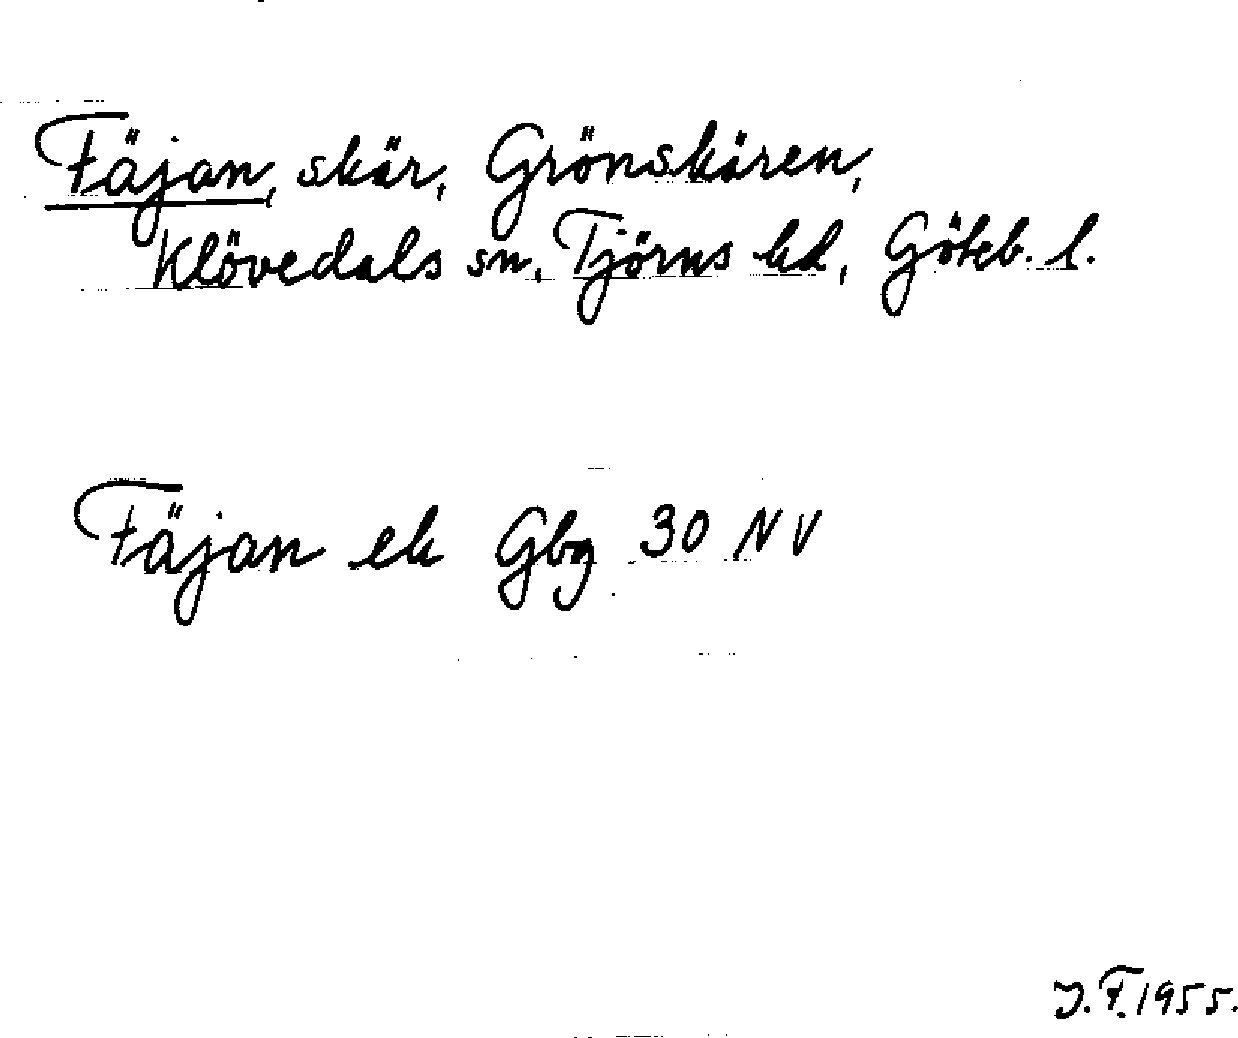 Fäjan, skär, Grönskären,
Klövedals sn, Tjörns hd, Göteb. l.
Fäjan ek Gbg 30 NV
J.F. 1955.